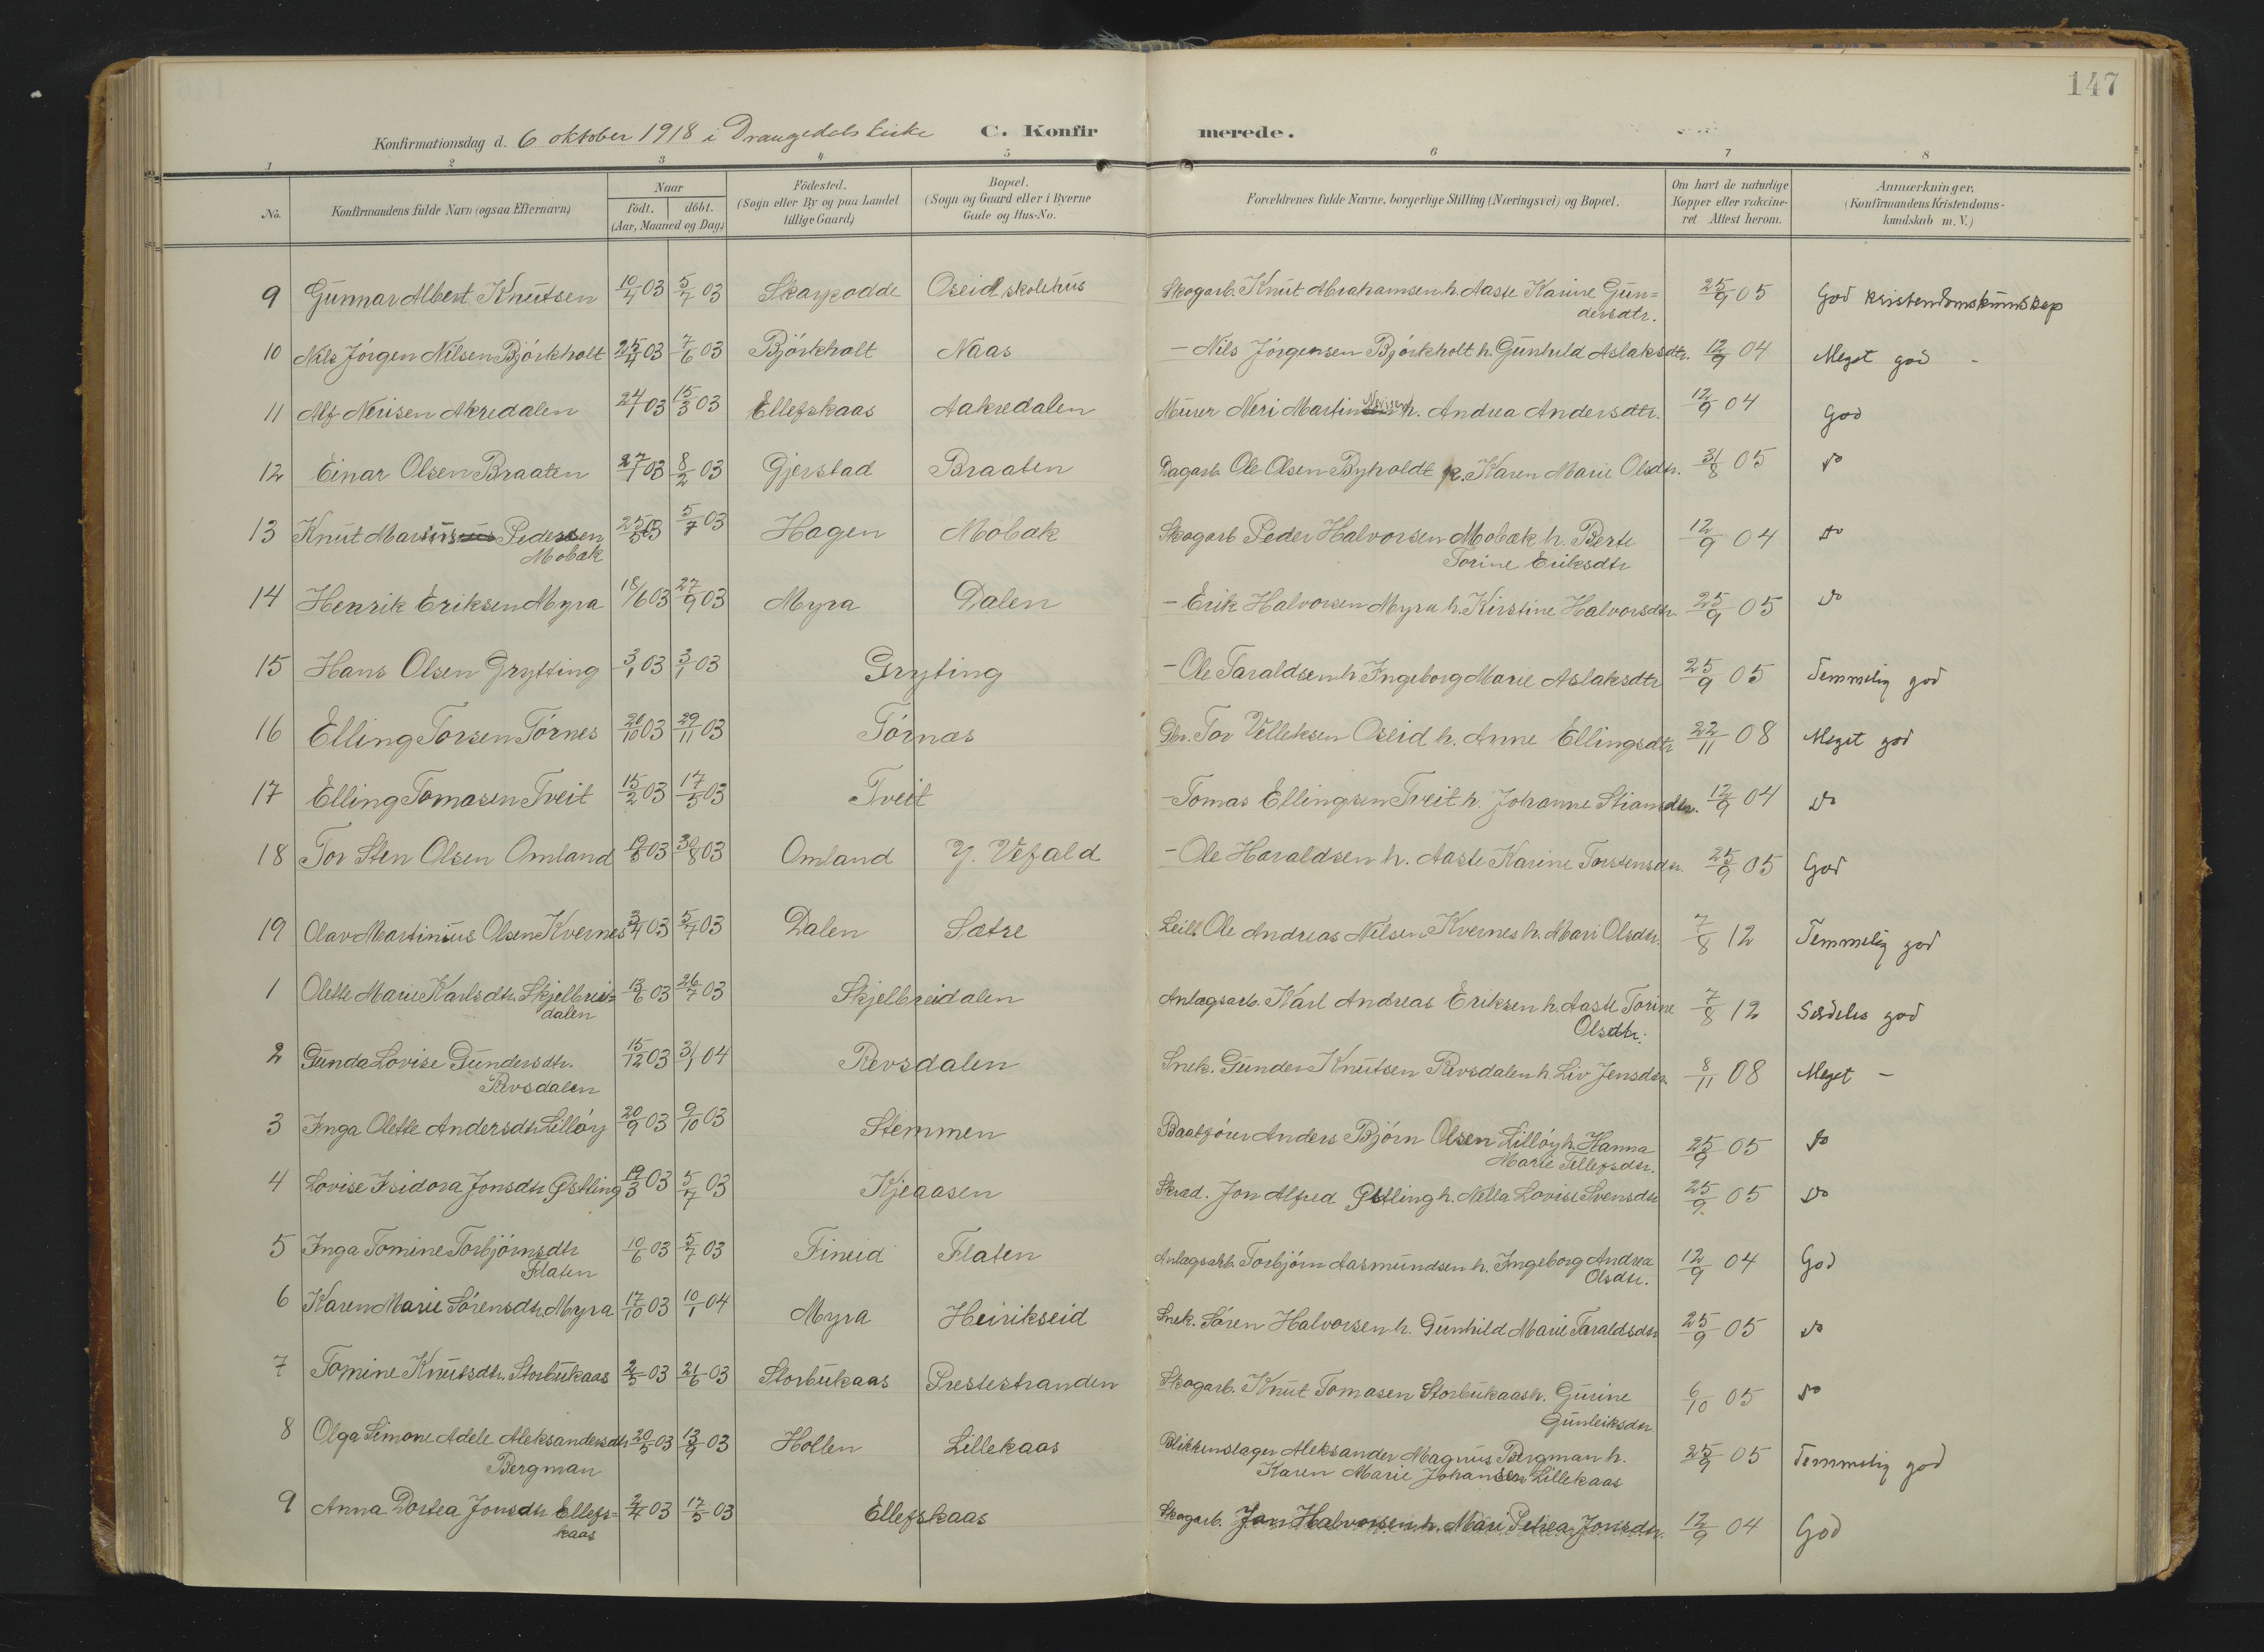 147
Konfirmationsdag d. 6 oktober 1918 i Drangedals kirke C. Konfirmerede.
1 2 3 4 5 6 7 8
No. Konfirmandens fulde Navn (ogsaa Efternavn) Naar födt. döbt. (Aar, Maaned og Dag) Födested. (Sogn eller By og paa Landet tillige Gaard) Bopæl. (Sogn og Gaard eller i Byerne Gade og Hus-No. Forældrenes fulde Navne, borgerlige Stilling (Næringsvei) og Bopæl. Om havt de naturlige Kopper eller vakcineret Attest herom. Anmærkninger. (Konfirmandens Kristendomskundskab m. V.)
9 Gunnar Albert Knutsen 10/4 03 5/7 03 Skarpodde Oseid skolehus Skogarb. Knut Abrahamsen h. Aaste Karine Gun=
dersdtr. 25/9 05 God kristendomskunskap
10 Nils Jörgen Nilsen Björkholt 25/4 03 7/6 03 Björkholt Naas - Nils Jörgensen Björkholt h. Gunhild Aslaksdtr. 12/9 04 Meget god -
11 Alf Nerisen Akredalen 24/1 03 15/3 03 Ellefskaas Aakredalen Murer Neri Martin Nerisen h. Andrea Andersdtr. 12/9 04 God
12 Einar Olsen Braaten 27/1 03 8/2 03 Gjerstad Braaten Dagarb. Ole Olsen Byholdt h. Karen Marie Olsdtr. 31/8 05 do
13 Knut Marius Pedersen
Mobæk 25/5 03 5/7 03 Hagen Mobæk Skogarb Peder Halvorsen Mobæk h. Berte
Torine Eriksdtr 12/9 04 do
14 Henrik Eriksen Myra 18/6 03 27/9 03 Myra Dalen - Erik Halvorsen Myra h. Kirstine Halvorsdtr. 25/9 05 do
15 Hans Olsen Grytting 3/1 03 3/1 03 Gryting - Ole Taraldsen h Ingeborg Marie Aslaksdtr 25/9 05 Temmelig god
16 Elling Torsen Törnes 20/10 03 29/11 03 Törnæs Gbr. Tor Velleksen Oseid h. Anne Ellingsdtr 22/11 08 Meget god
17 Elling Tomasen Tveit 15/2 03 17/5 03 Tveit - Tomas Ellingsen Tveit h. Johanne Stiansdtr. 12/9 04 do
18 Tor Sten Olsen Omland 19/5 03 30/8 03 Omland Y. Vefald - Ole Haraldsen h. Aaste Karine Torstensdtr. 25/9 05 God
19 Olav Martinius Olsen Kvernes 3/4 03 5/7 03 Dalen Sætre Leill. Ole Andreas Nilsen Kvernes h. Mari Olsdtr. 7/8 12 Temmelig god
1 Olette Marie Karlsdtr. Skjelbrei=
dalen 13/6 03 26/7 03 Skjelbreidalen Anlægsarb. Karl Andreas Eriksen h. Aaste Torine
Olsdtr. 7/8 12 Særdeles god
2 Gunda Lovise Gundersdtr.
Revsdalen 15/12 03 31/1 04 Revsdalen Snek. Gunder Knutsen Revsdalen h. Liv Jensdtr. 8/11 08 Meget -
3 Inga Olette Andersdtr Lillöy 20/9 03 9/10 03 Stemmen Baatförer Anders Björn Olsen Lillöy h. Hanna
Marie Tellefsdtr. 25/9 05 do
4 Lovise Isidora Jonsdtr Østling 19/3 03 5/7 03 Kjeaasen Skræd. Jon Alfred Østling h. Nella Lovise Svensdtr 25/9 05 do
5 Inga Tomine Torbjörnsdtr
Flaten 10/6 03 5/7 03 Fineid Flaten Anlægsarb. Torbjörn Aasmundsen h. Ingeborg Andrea
Olsdtr. 12/9 04 God
6 Karen Marie Sörensdtr. Myra 17/10 03 10/1 04 Myra Heirikseid Snek. Sören Halvorsen h. Gunhild Marie Taraldsdtr 25/9 05 do
7 Tomine Knutsdtr. Storbukaas 2/5 03 21/6 03 Storbukaas Prestestranden Skogarb. Knut Tomasen Storbukaas h. Gurine
Gunleiksdtr. 6/10 05 do
8 Olga Simone Adele Aleksandersdtr
Bergman 20/5 03 13/9 03 Hollen Lillekaas Blikkenslager Aleksander Magnus Bergman h.
Karen Marie Johansen Lillekaas 25/9 05 Temmelig god
9 Anna Dortea Jonsdtr Ellefs=
kaas 2/4 03 17/5 03 Ellefskaas Skogarb. Jan Halvorsen h. Mari Petrea Jonsdtr. 12/9 04 God